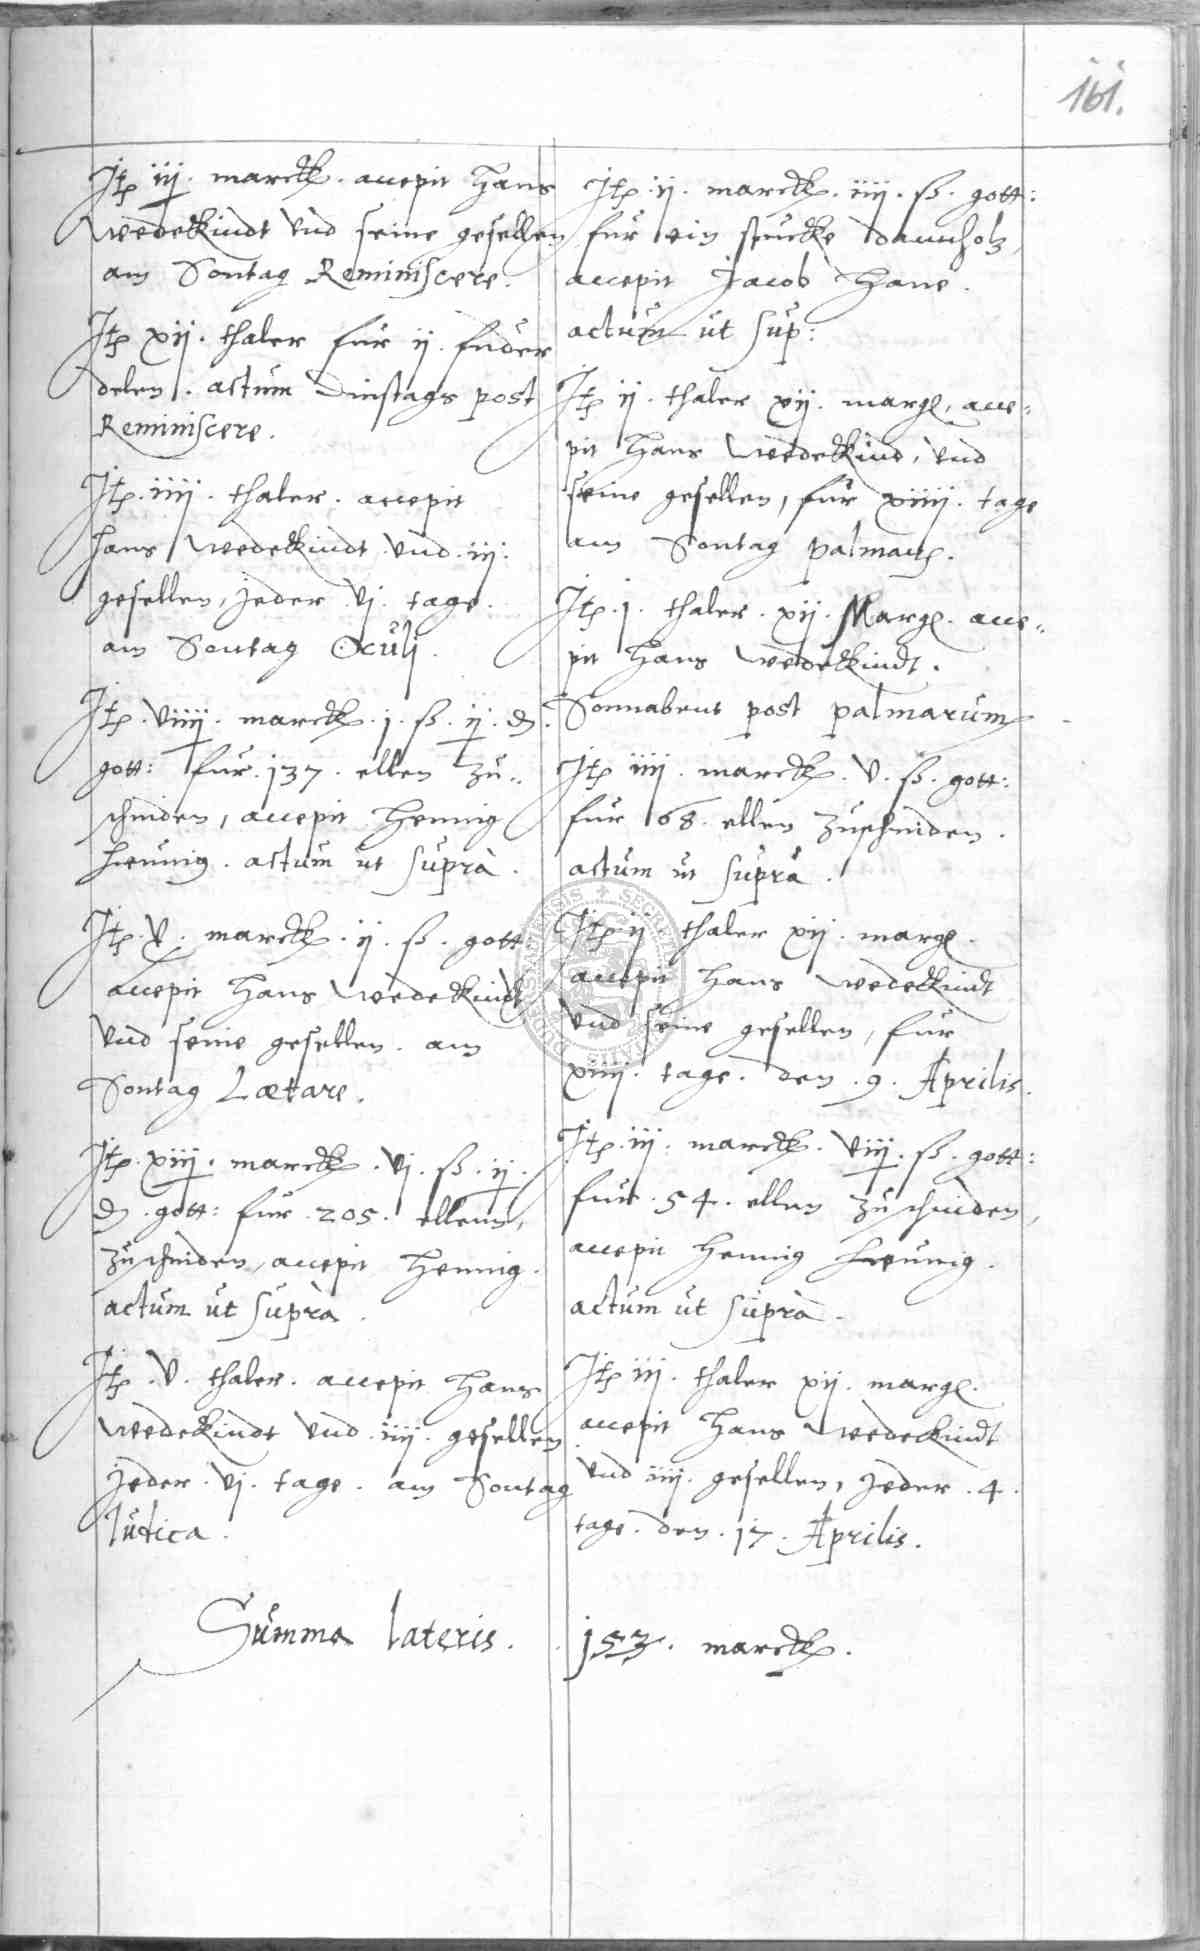 161.
Itp iij. marck. accepit Hans
wedekindt vnd seine gesellen
am Sontag Reminiscere.
Itp xij. thaler fur ij. fuder
delen. actum Dinstags post
Reminiscere.
Itp. iiij. thaler. accepit
Hans wedekindt vnd. iij.
gesellen, jeder vj. tage.
am Sontag Oculi.
Itp. viiij. marck. j. ß. ij. d.
gott: fur. 137. ellen zu-
schniden, accepit Hennig
Hennig. actum ut suprà.
Itp. v. marck. ij. ß. gott:
accepit Hans wedekindt
vnd seine gesellen. am
Sontag Lætare.
Itp. xiij. marck. vj. ß. ij.
d. gott: fur. 205. ellenn,
zuschniden, accepit Hennig.
actum ut suprà.
Itp. v. thaler. accepit Hans
wedekindt vnd. iiij. gesellen
jeder. vj. tage. am Sontag
Iudica.
Itp. ij. marck. iiij. ß. gott:
fur ein stucke dannholz,
accepit Jacob Hane.
actum ut sup:
Itp ij. thaler xij. marg. acce-
pit Hans wedekind, vnd
seine gesellen, fur xiiij. tage
am Sontag palmarum.
Itp. j. thaler. xij. Marg. acce-
pit Hans wedekindt.
Sonnabent post palmarum
Itp iiij. marck. v. ß. gott:
fur 68. ellen zuschniden.
actum ut suprà.
Itp. ij. thaler xij. marg.
accepit Hans wedekindt
vnd seine gesellen, fur
xiiij. tage. den. 9. Aprilis.
Itp. iij. marck. viij. ß. gott:
fur. 54. ellen zu schniden,
accepit Hennig Hennig.
actum ut suprà.
Itp iij. thaler xij. marg.
accepit Hans wedekindt
vnd iiij. gesellen, jeder. 4.
tage. den. 17. Aprilis.
Summa lateris. 153. marck.